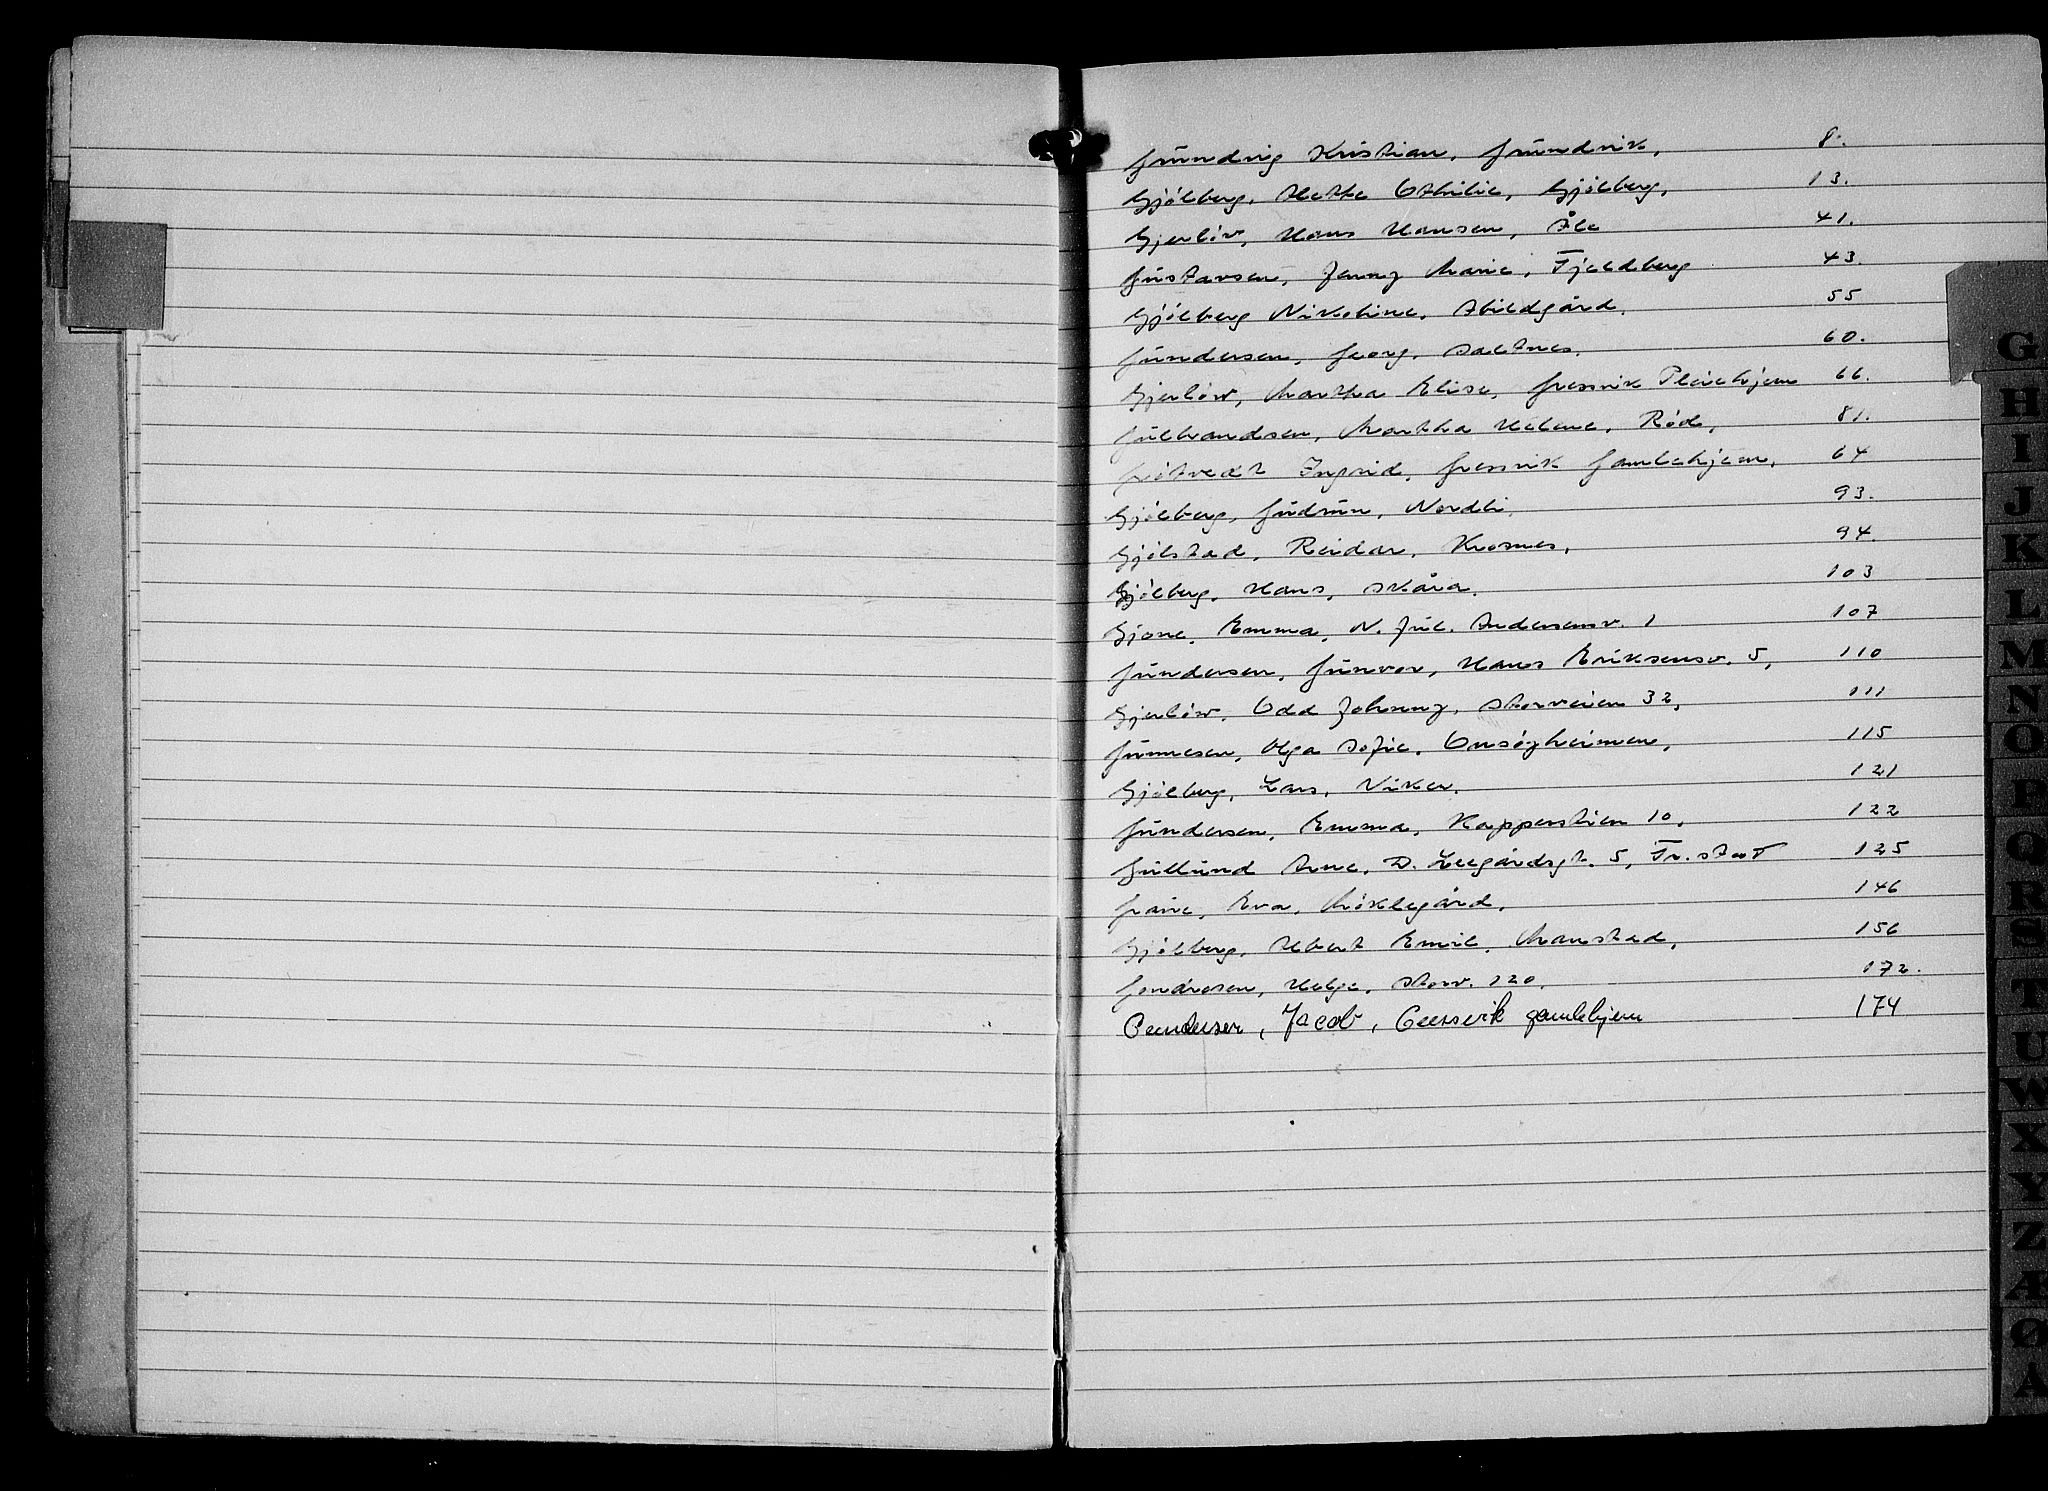 Grundvig Kristian, Grundvik, 8.
Gjölberg, Mette Othilie, Gjölberg, 13.
Gjerlöw, Hans Hansen, Åle 41.
Gustavsen, Jenny Marie, Fjeldberg 43.
Gjölberg Nikoline, Abildgård. 55
Gundersen, Georg, Saltnes. 60.
Gjerlöw, Martha Elise, Gressvik Pleiehjem 66.
Gulbrandsen, Martha Helene, Röd, 81.
Ingrid, Gressvik Gamlehjem, 64
Gjölberg, Gudrun, Nordli, 93.
Gjölstad, Reidar, Krosnes, 94.
Gjölberg, Hans, Skåra. 103
Gjone, Emma, N. Jul. Andersensv. 1 107
Gundersen, Gunvor, Hans Eriksensv. 5, 110
Gjerlöw, Odd Johnny, Storveien 32, 111
Gunnesen, Olga Sofie, Onsöyheimen, 115
Gjölberg, Lars, Viker. 121
Gundersen, Emma, Kapperslien 10, 122
Gullund Arne, D. Leegårdsgt. 5, Fr.stad 125
Eva, Möklegård, 146
Gjölberg, Albert Emil, Manstad, 156
Gondrosen, Helge, Storv. 120, 172.
Gundersen, Jacob, Gressvik gamlehjem 174
G
H
I
J
K
L
M
N
O
P
Q
R
S
T
U
W
X
Y
Z
Æ
Ø
A